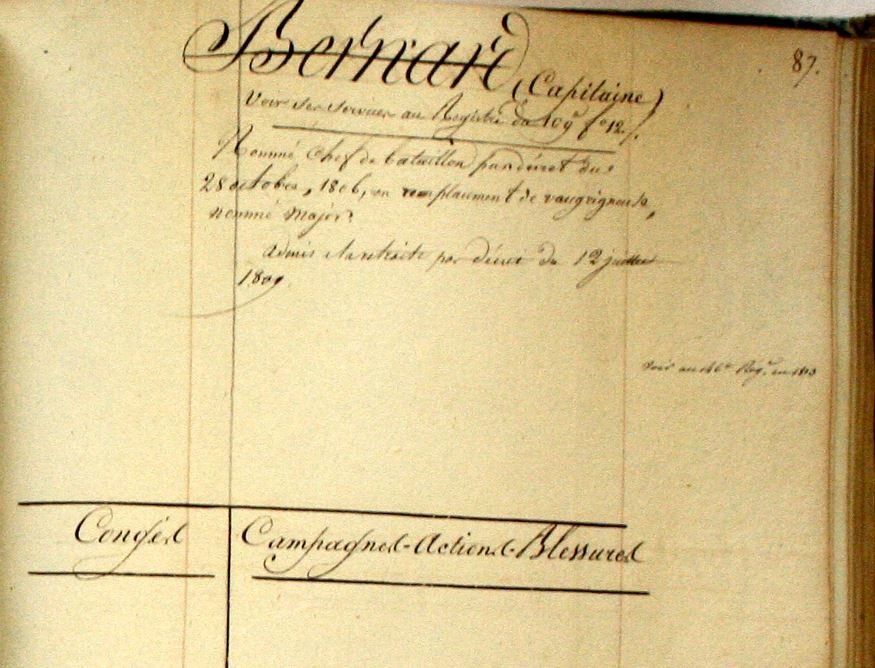 87.
Bernard (Capitaine)
Voir ses services au Registre du 109e fo 12.
Nommé Chef de bataillon par décret du
28 octobre, 1806, en remplacement de
nommé Major.
admis à la retraite par décret du 12 juillet
1809
Voir au Rég.
Congés
Campagnes-Actions-Blessures